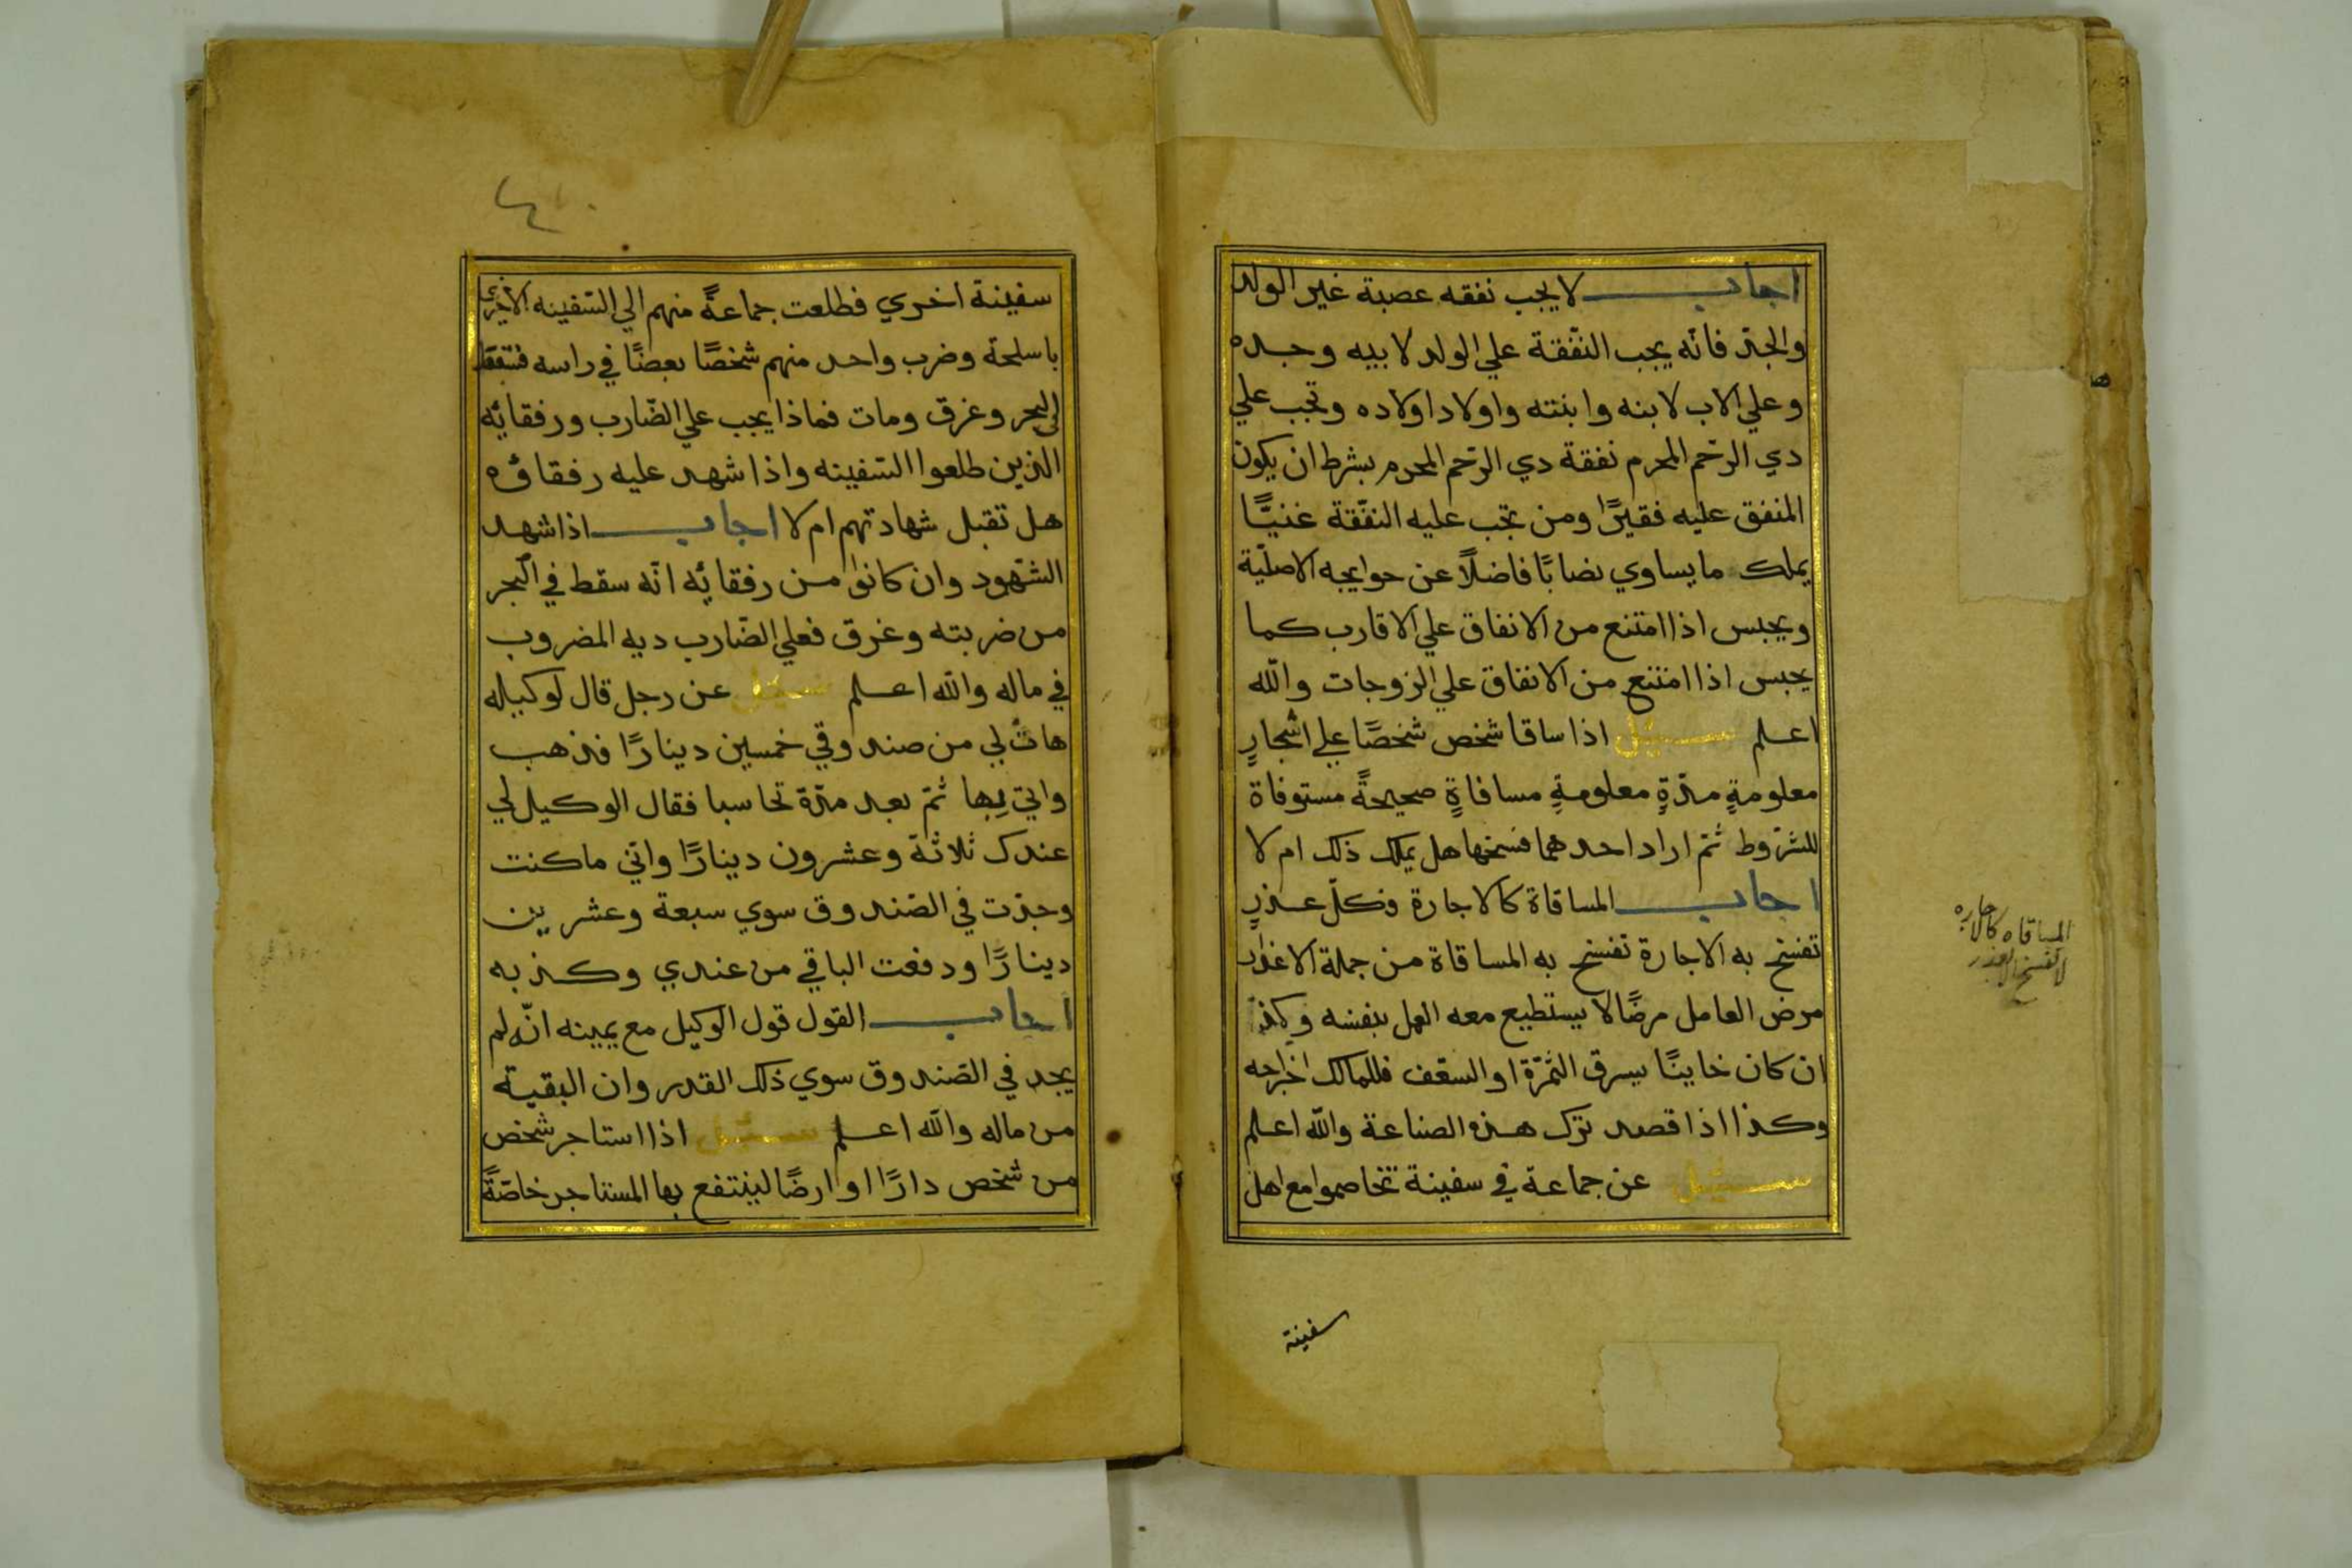 اجاب لا يجب نفقه عصبة غير الولد
والجدّ فانّه يجب النّفقة علي الولد لابيه وجده
وعلي الاب لابنه وابنته واولاد اولاده وتجب علي
دي الرّحم المحرم نفقة دي الرّحم المحرم بشرط ان يكون
المنفق عليه فقيرًا ومن تجب عليه النفّقة غنيًّا
يملك ما يساوي نصابًا فاضلاً عن حوايجه الاصليّة
ويحبس اذا امتنع من الانفاق علي الاقارب كما
يحبس اذا امتنع من الانفاق علي الزوجات والله
اعلم سئيل اذا ساقا شخص شخصًا علي اشجارٍ
معلومةٍ مدّةٍ معلومةٍ مساقاةٍ صحيحةً مستوفاة
للشرّوط ثمّ اراد احدهما فسخها هل يملك ذلك ام لا
اجاب المساقاة كالاجارة فكلّ عذرٍ
تفسخ به الاجارة تفسخ به المساقاة من جملة الاعذار
مرض العامل مرضًا لا يستطيع معه العمل بنفسه وكذا
ان كان خاينًا يسرق الثمّرة او السعف فللمالك اخراجه
وكذا اذا قصد ترك هذه الصناعة والله اعلم
سئيل عن جماعة في سفينة تخاصموا مع اهل
سفينة
المساقاه كالاجاره
لا تفسخ الا بعذر
سفينة اخري فطلعت جماعةً منهم الي السّفينه الاخرى
باسلحة وضرب واحد منهم شخصًا بعصًا في راسه فسقط
في البحر وغرق ومات فماذا يجب علي الضّارب ورفقائه
الذين طلعوا السّفينه واذا شهد عليه رفقاؤه
هل تقبل شهادتهم ام لا اجاب اذا شهد
الشّهود وان كانوا من رفقائه انّه سقط في البحر
من ضربته وغرق فعلي الضّارب ديه المضروب
في ماله والله اعلم سئيل عن رجل قال لوكيله
هات لي من صندوقي خمسين دينارًا فذهب
واتي بها ثمّ بعد مدّة تحاسبا فقال الوكيل لي
عندك ثلاثة وعشرون دينارًا وانّي ما كنت
وجدّت في الصّندوق سوي سبعة وعشرين
دينارًا ودفعت الباقي من عندي وكذبه
اجاب القول قول الوكيل مع يمينه انّه لم
يجد في الصّندوق سوي ذلك القدر وان البقيّة
من ماله والله اعلم سئيل اذا استاجر شخص
من شخص دارًا او ارضًا لينتفع بها المستاجر خاصّةً